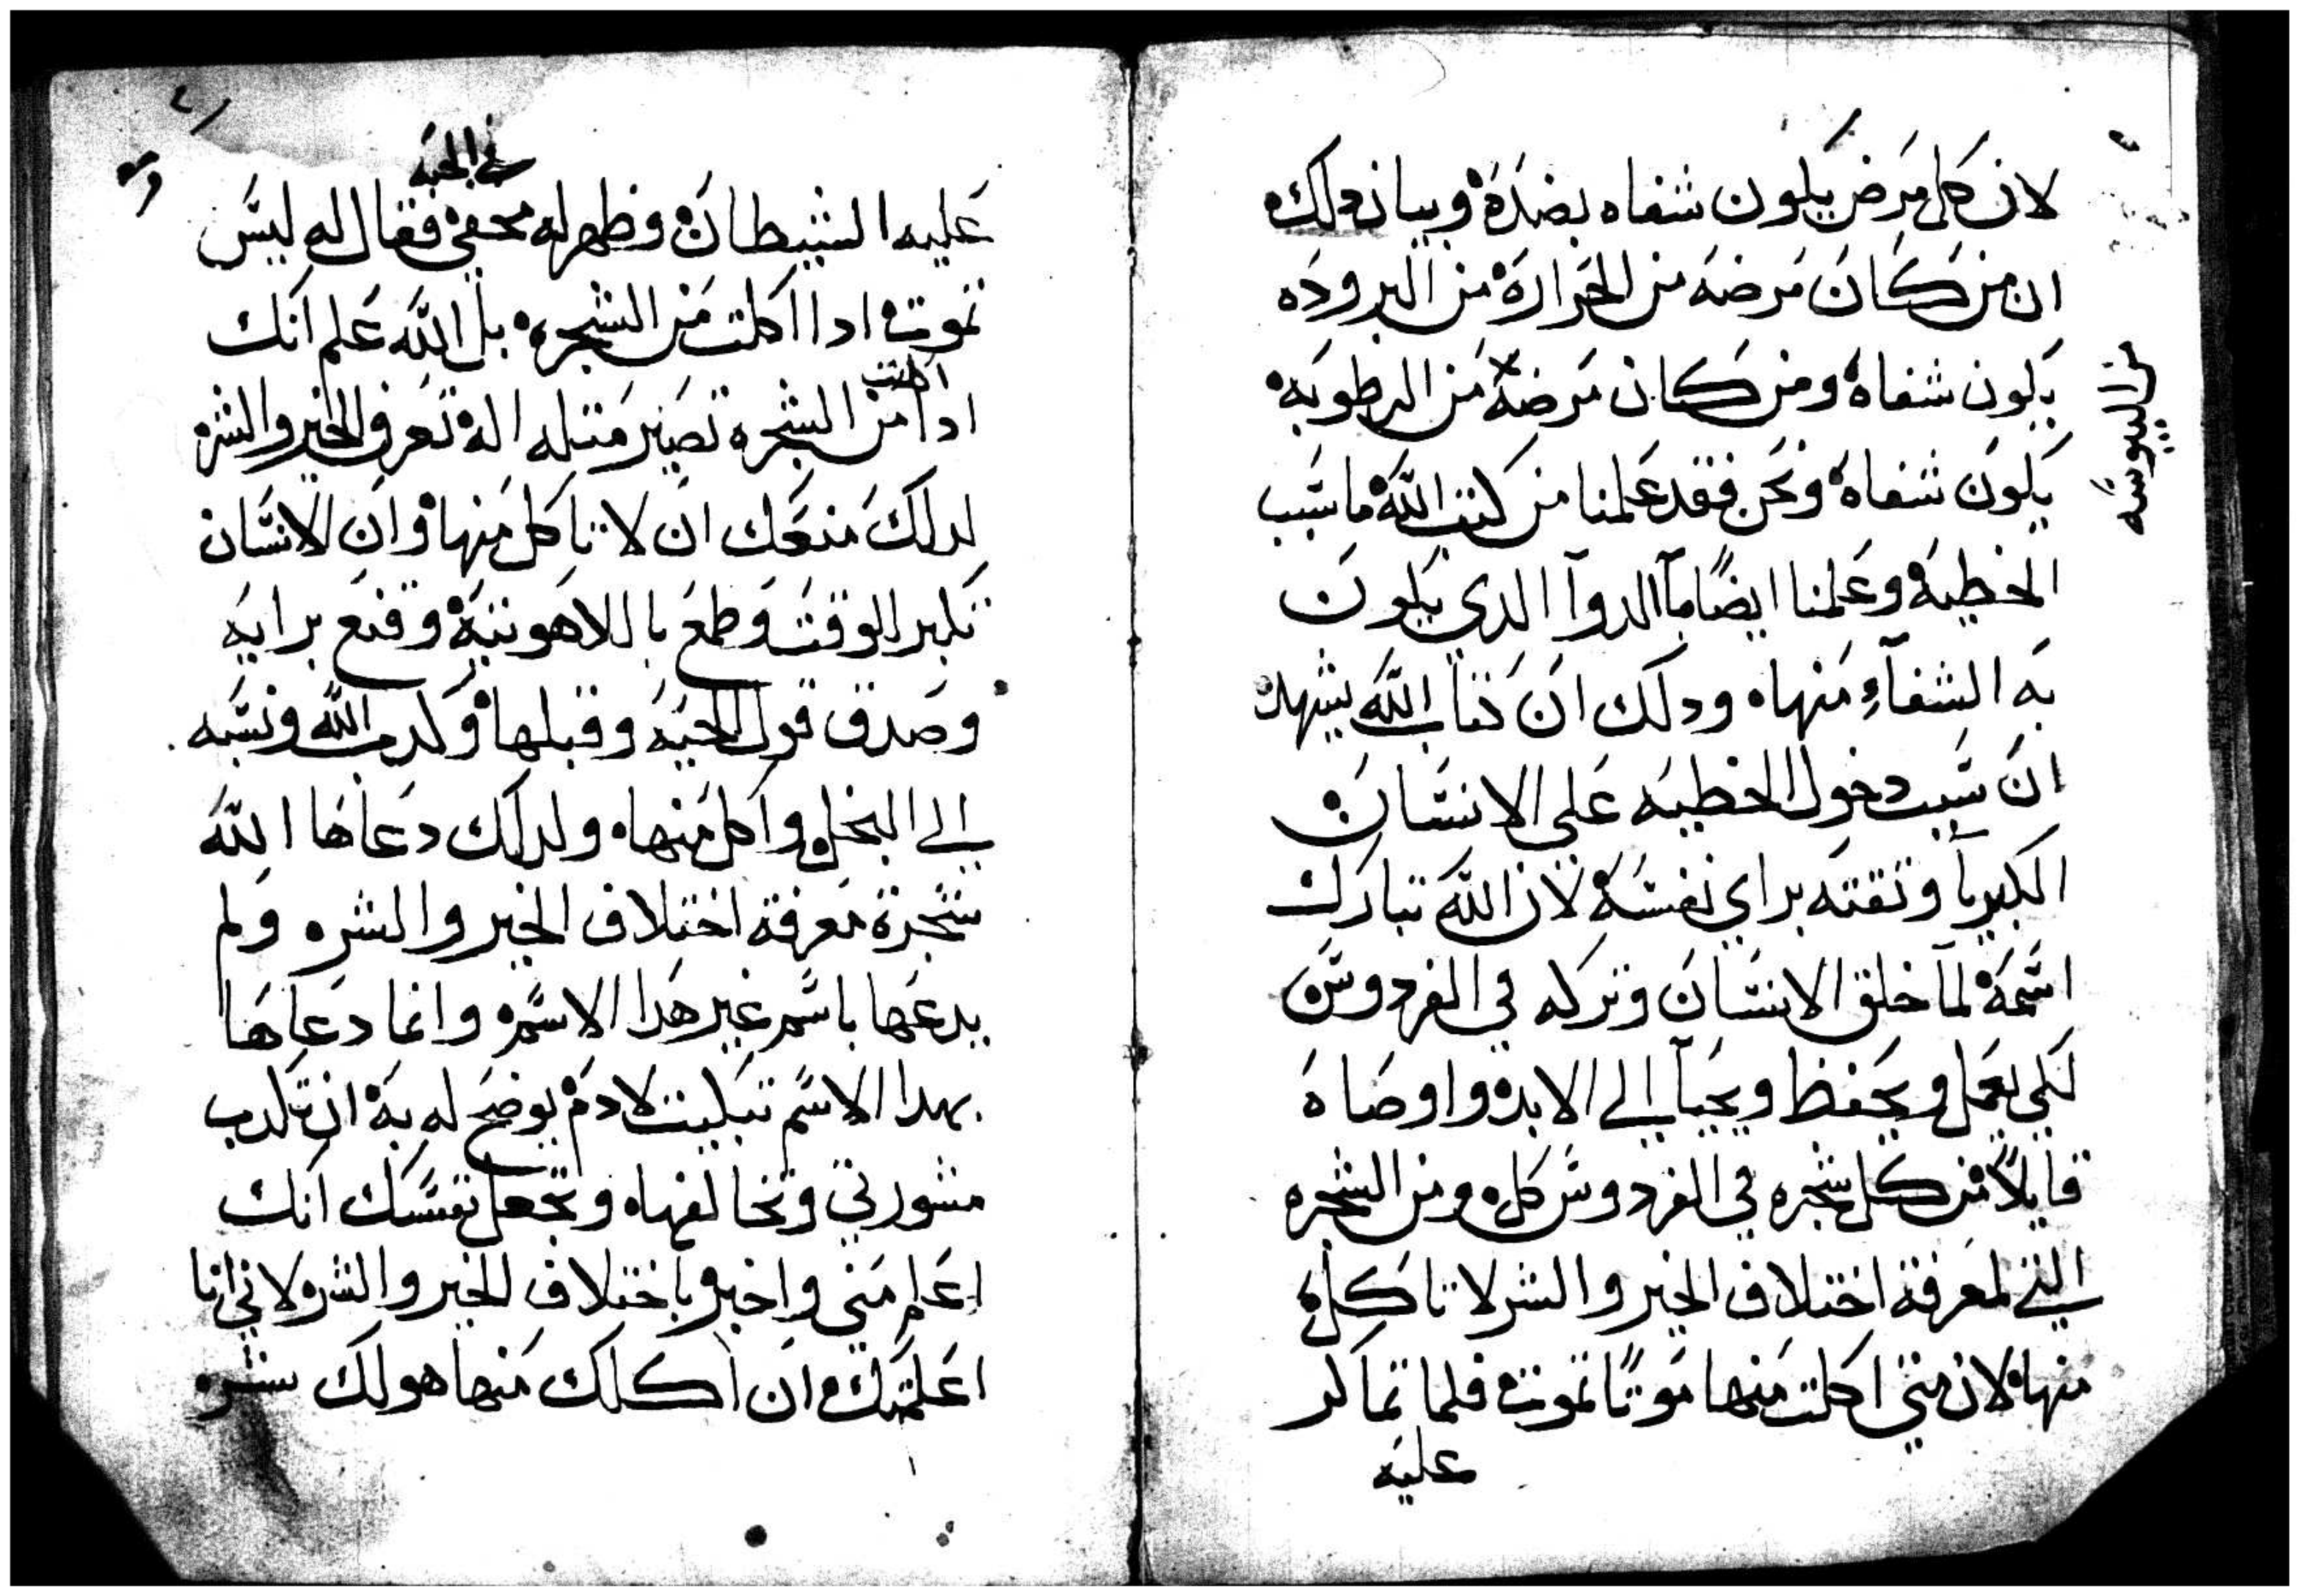 لان كل مرض يكون شفاه بضده وبيان دلك
ان من كان مرضه من الحراره من البروده
يكون شفاه ومن كان مرضه من الرطوبه
من اليبوسه
يكون شفاه ونحن فقد علمنا من كتب الله ما سبب
الخطيه وعلمنا ايضًا ما الدوآ الدي يكون
به الشفآء منها ودلك ان كتاب الله يشهد
ان سبب دخول الخطيه على الانسان
الكبريآ وتقته براي نفسه لان الله تبارك
اسمه لمآ خلق الانسان وتركه في الفردوس
لكي يعمل ويحفظ ويحيآ الي الابد واوصاه
قايلاً من كل شجره في الفردوس كل ومن الشجره
التي لمعرفة اختلاف الخير والشر لا تاكل
منها لان متي اكلت منها موتًا تموت فلما تماكر
عليه
في الحيه
عليه الشيطان وظهر له مخفي فقال له ليس
تموت ادا اكلت من الشجره بل الله علم انك
اكلت
ادا من الشجره تصير متله اله تعرف الخير والشر
لدلك منعك ان لا تاكل منها وان الانسان
تكبر الوقت وطمع با اللاهوتيه وقنع برايه
وصدق قول الحيه وقبلها وكدب الله ونسبه
الي البخل واكل منها ولدلك دعاها الله
شجرة معرفة اختلاف الخير والشر ولم
يدعها باسم غير هدا الاسم وانما دعاها
بهدا الاسم تبكيت لادم يوضح له به ان تكدب
مشورتي وتخالفها وتجعل نفسك انك
اعلم مني واخبر باختلاف الخير والشر لاني انا
اعلمتك ان اكلك منها هو لك شر